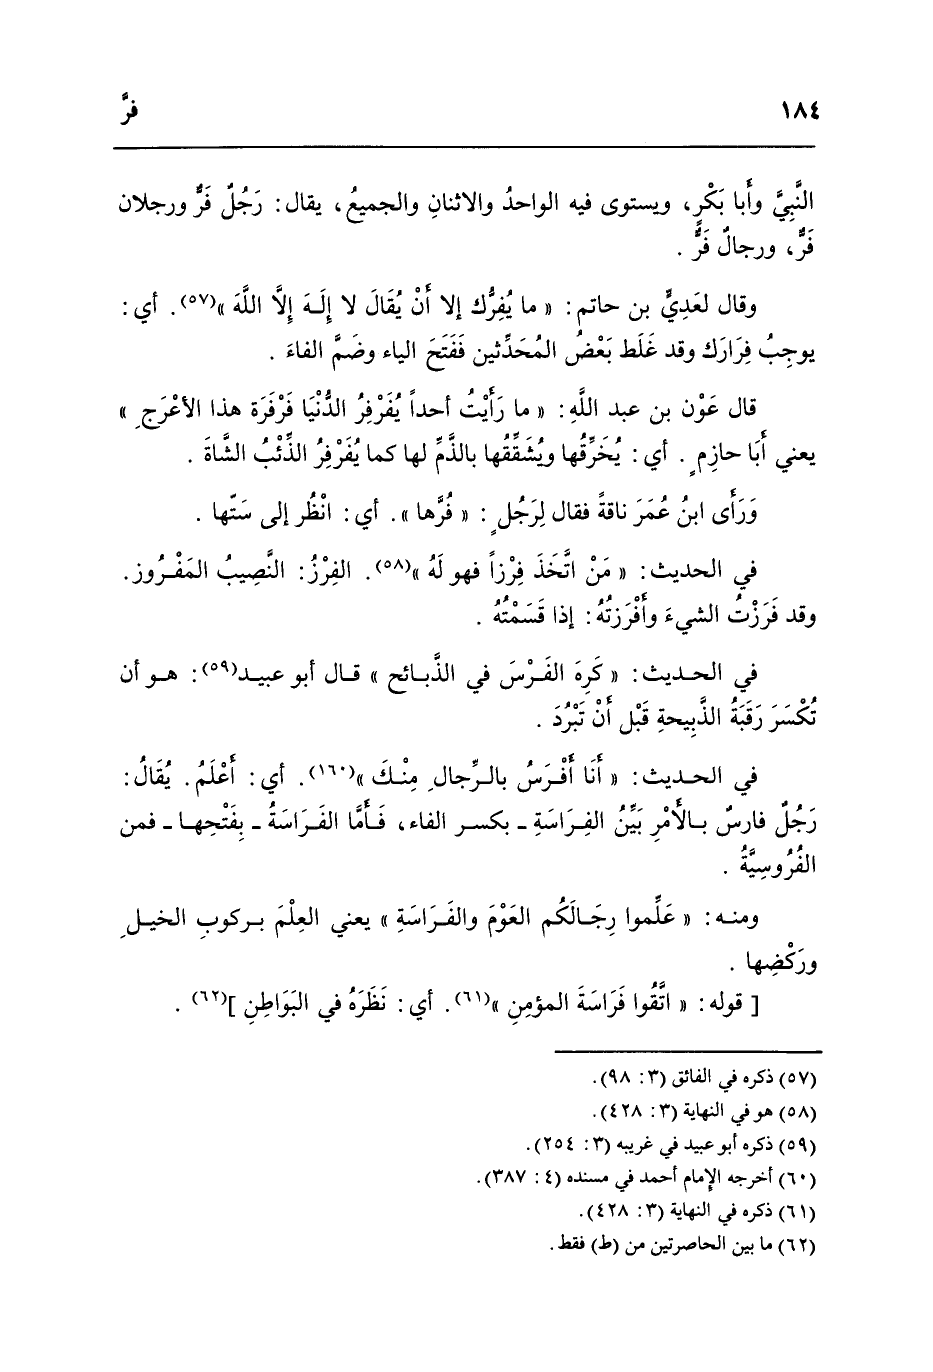 ١٨٤
فرَّ
النَّبِيَّ وأَبا بَكْرٍ، ويستوى فيه الواحدُ والاثنانِ والجميعُ، يقال: رَجُلٌ فَرٌّ ورجلان
فَرٌّ، ورجالٌ فَرٌّ .
وقال لعَدِيٍّ بن حاتم: « ما يُفِرُّك إلا أَنْ يُقَالَ لا إِلَـهَ إلَّا اللَّهَ »(٥٧). أي:
يوجِبُ فِرَارَك وقد غَلَط بَعْضُ المُحَدِّثين فَفَتَحَ الياء وضَمَّ الفاءَ .
قال عَوْن بن عبد اللَّهِ: « ما رَأَيْتُ أحداً يُفَرْفِرُ الدُّنْيَا فَرْفَرَة هذا الأعْرَجِ »
يعني أَبَا حازِمٍ. أي: يُخَرِّقُها ويُشَقِّقُها بالذَّمِّ لها كما يُفَرْفِرُ الذِّئْبُ الشَّاةَ .
وَرَأَى ابنُ عُمَرَ ناقةً فقال لِرَجُلٍ: « فُرَّها ». أي: انْظُر إلى سَنّها .
في الحديث: « مَنْ اتَّخَذَ فِرْزاً فهو لَهُ »(٥٨). الفِرْزُ: النَّصِيبُ المَفْـرُوز.
وقد فَرَزْتُ الشيءَ وأَفْرَزتُهُ: إذا قَسَمْتُهُ .
في الحـديث: « كَرِهَ الفَـرْسَ في الذَّبـائح » قـال أبو عبيـد(٥٩): هـو أن
تُكْسَرَ رَقَبَةُ الذَّبِيحةِ قَبْل أَنْ تَبْرُدَ .
في الحـديث: « أَنَا أَفْـرَسُ بالـرِّجالِ مِنْـكَ »(١٦٠). أي: أَعْلَمُ. يُقَالُ:
رَجُلٌ فارسٌ بـالأَمْرِ بَيِّنُ الفِـرَاسَةِ ـ بكسـر الفاء، فَـأَمَّا الفَـرَاسَةُ ـ بِفَتْحِهـا ـ فمن
الفُرُوسِيَّةُ .
ومنـه: « عَلِّموا رِجَـالَكُم العَوْمَ والفَـرَاسَةِ » يعني العِلْمَ بـركوبِ الخيـلِ
ورَكْضِها .
[ قوله: « اتَّقُوا فَرَاسَةَ المؤمِنِ »(٦١). أي: نَظَرَهُ في البَوَاطِنِ ](٦٢) .
(٥٧) ذكره في الفائق (٣: ٩٨).
(٥٨) هو في النهاية (٣: ٤٢٨).
(٥٩) ذكره أبو عبيد في غريبه (٣: ٢٥٤).
(٦٠) أخرجه الإمام أحمد في مسنده (٤: ٣٨٧).
(٦١) ذكره في النهاية (٣: ٤٢٨).
(٦٢) ما بين الحاصرتين من (ط) فقط.